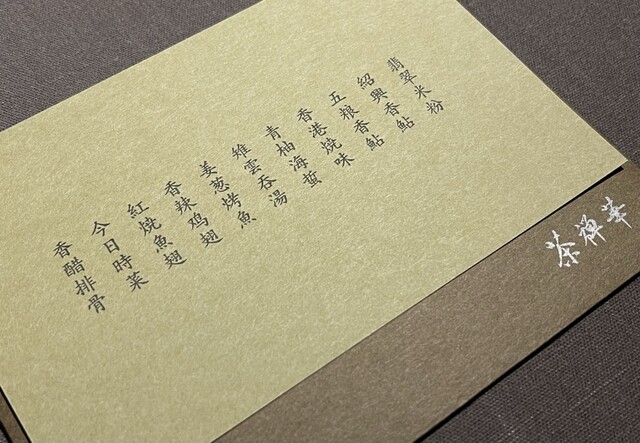 翡翠米粉
紹興香鮎
五粮香鮎
香港燒味
青柚海蜇
雉雲吞湯
姜葱烤魚
香辣鸡翅
紅燒魚翅
今日時菜
香醋排骨
茶禅華